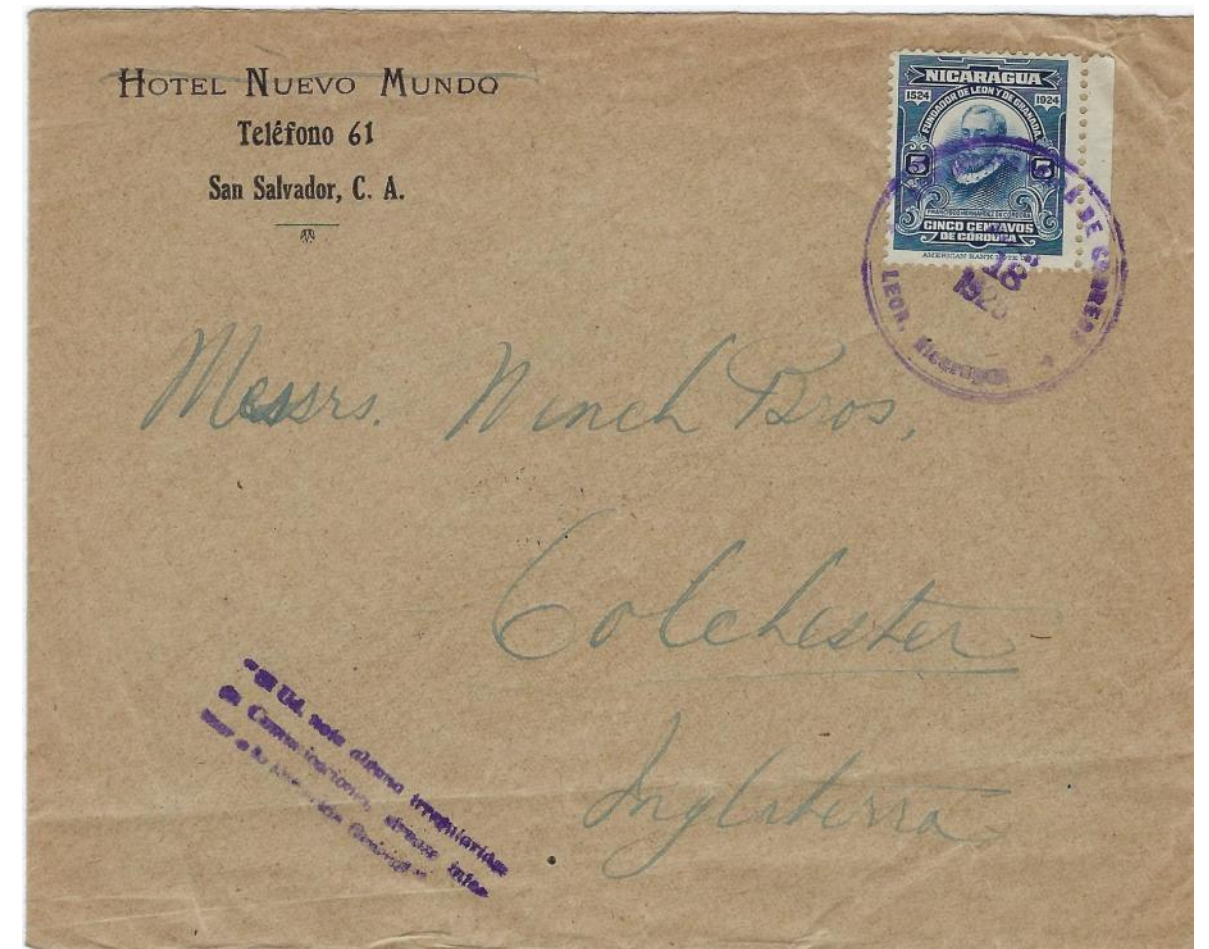 HOTEL NUEVO MUNDO
Teléfono 61
San Salvador, C. A.
NICARAGUA
1524 1924
FUNDADOR DE LEON Y DE GRANADA
5 5
FRANCISCO HERNANDEZ DE CORDOBA
CINCO CENTAVOS
DE CORDOBA
AMERICAN BANK NOTE
DE CORREOS
18
LEON, Nicaragua
Messrs. Winch Bros,
Colchester
Inglaterra
Ud. note alguna irregularidad
en Comunicaciones, sirvase infor
mar a la